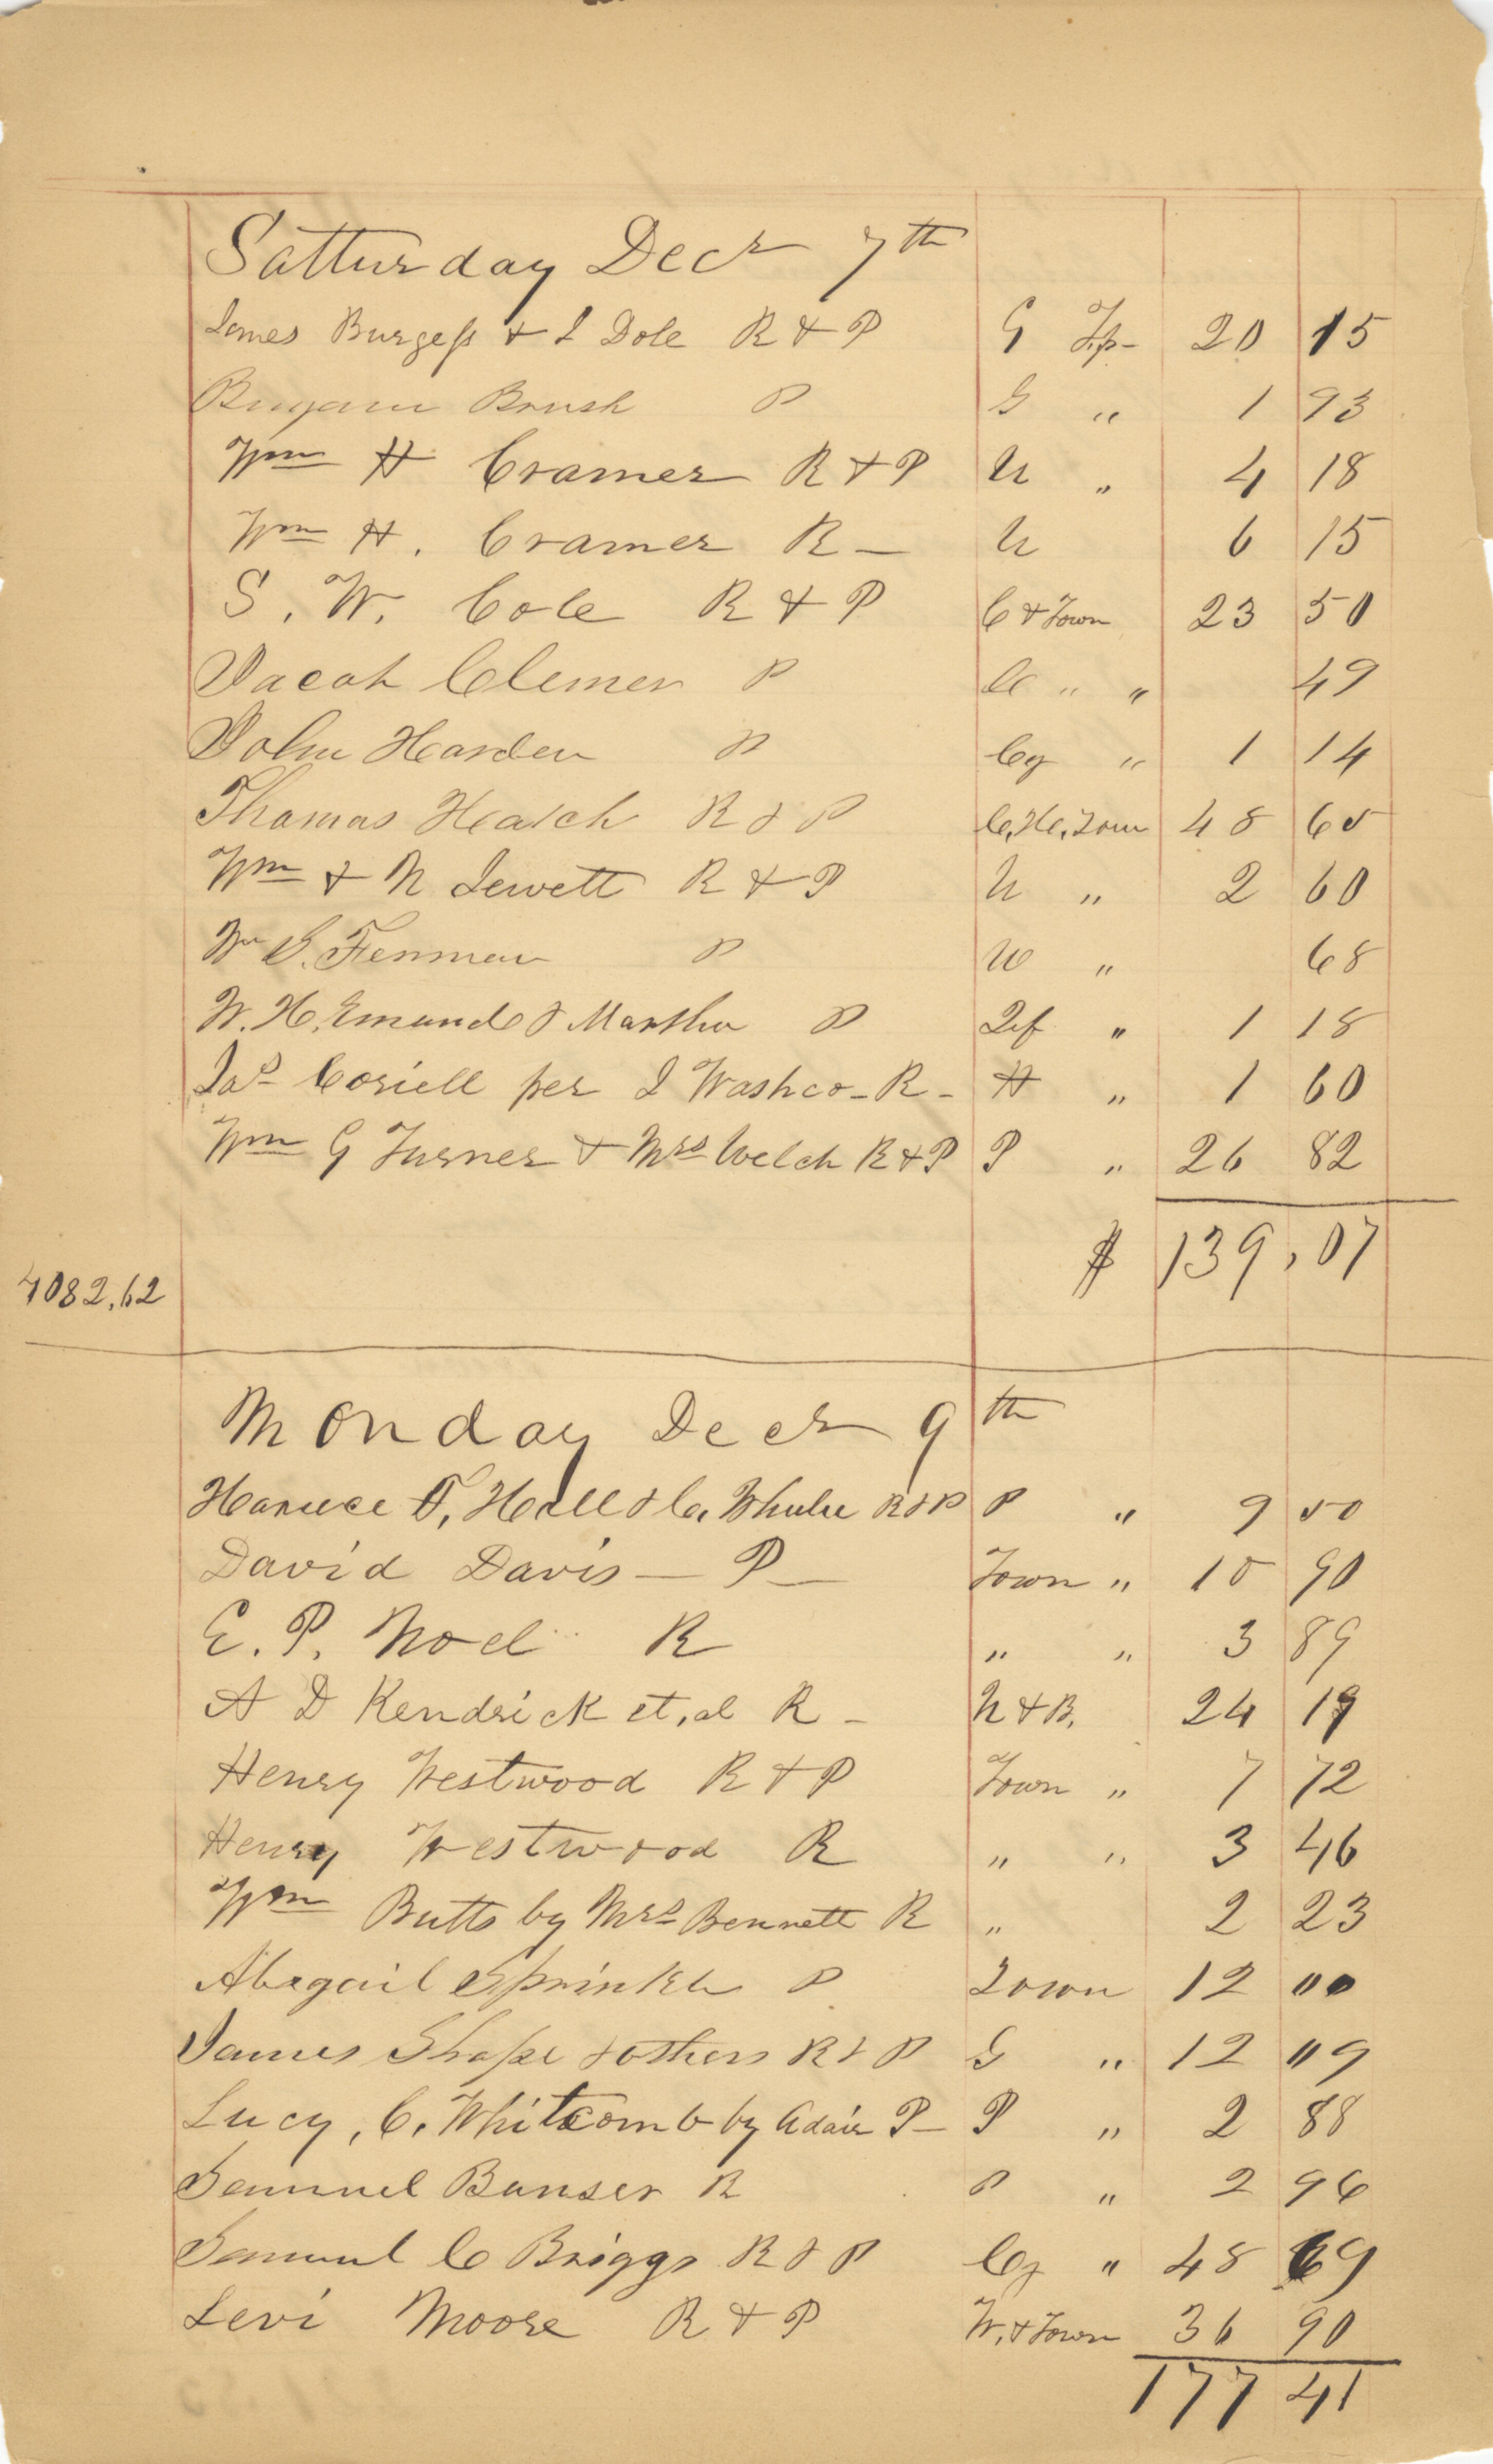 Satturday Decr 7th
James Burgess & J Dole R & P G Tp- 20 15
Brush P G " 1 93
Wm H Cramer R & P U " 4 18
Wm H. Cramer R — U 6 15
S. W. Cole R & P C & Town 23 50
Jacob Clemer P " " 49
John Harden P Cy " 1 14
Thomas Hatch R & P C.H. Town 48 65
Wm & N Jewett R & P U " 2 60
Wm S. Fenman P W " 68
W. H. Emund & Martha P " 1 18
Jas Coriell per J Washco - R - H " 1 60
Wm G Turner & Mrs Welch R & P P " 26 82
$ 139,07
4082,62
Monday Decr 9th
T. Hall & Co. R & P P " 9 50
David Davis — P — Town " 10 90
E. P. Noel R " " 3 89
A D Kendrick et, al R - U & B. 24 19
Henry Westwood R & P Town " 7 72
Henry Westwood R " " 3 46
Wm Butts by Mrs Bennett R " 2 23
Abagail Sprinkle P Town 12 00
James Shope & others R & P G " 12 09
Lucy, C. Whitcomb by Adair P - P " 2 88
Samuel Banser R P " 2 96
Samuel C Briggs R & P Cy " 48 69
Levi Moore R & P W. & Town 36 90
177 41